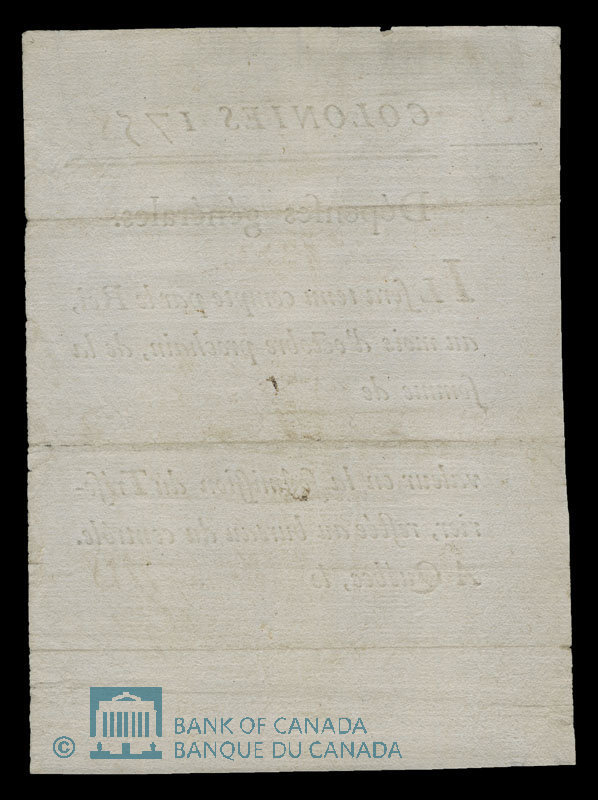 COLONIES 175
Dépenses générales.
IL sera tenu compte par le Roi,
au mois d'octobre prochain, de la
somme de
valeur en la soumission du Tréso-
rier, restée au bureau du contrôle.
A Québec, le
© BANK OF CANADA
BANQUE DU CANADA